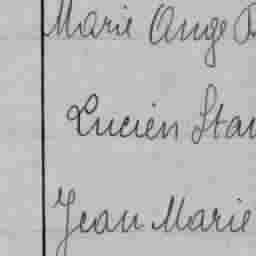 Marie Ange
Lucien Stan
Jean Marie